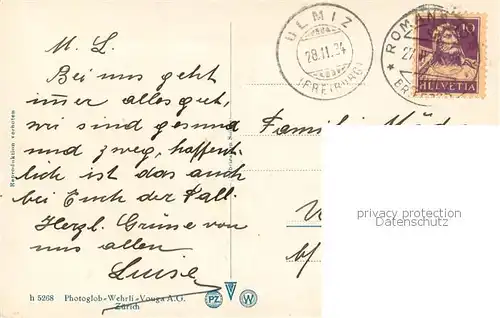 M. L.
Bei uns geht
immer alles gut,
wir sind gesund
und zweg, hoffent-
lich ist das auch
bei Euch der Fall.
Herzl. Grüsse von
uns allen
Luise
Reproduktion verboten
h 5268 Photoglob-Wehrli-Vouga A.G.
Zürich
PZ W
ULMIZ
28.11.34
(FREIBURG)
ROMAN
27.
10
HELVETIA
Familie
privacy protection
Datenschutz